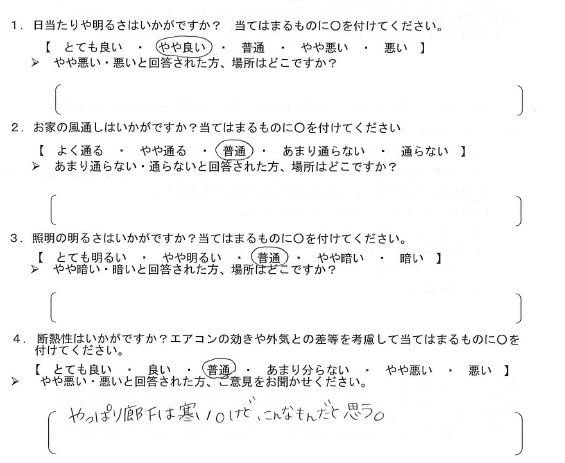 1. 日当たりや明るさはいかがですか？ 当てはまるものに〇を付けてください。
【 とても良い ・ やや良い ・ 普通 ・ やや悪い ・ 悪い 】
➢ やや悪い・悪いと回答された方、場所はどこですか？
2. お家の風通しはいかがですか？当てはまるものに〇を付けてください
【 よく通る ・ やや通る ・ 普通 ・ あまり通らない ・ 通らない 】
➢ あまり通らない・通らないと回答された方、場所はどこですか？
3. 照明の明るさはいかがですか？当てはまるものに〇を付けてください。
【 とても明るい ・ やや明るい ・ 普通 ・ やや暗い ・ 暗い 】
➢ やや暗い・暗いと回答された方、場所はどこですか？
4. 断熱性はいかがですか？エアコンの効きや外気との差等を考慮して当てはまるものに〇を
付けてください。
【 とても良い ・ 良い ・ 普通 ・ あまり分らない ・ やや悪い ・ 悪い 】
➢ やや悪い・悪いと回答された方、ご意見をお聞かせください。
やっぱり廊下は寒い。けど、こんなもんだと思う。